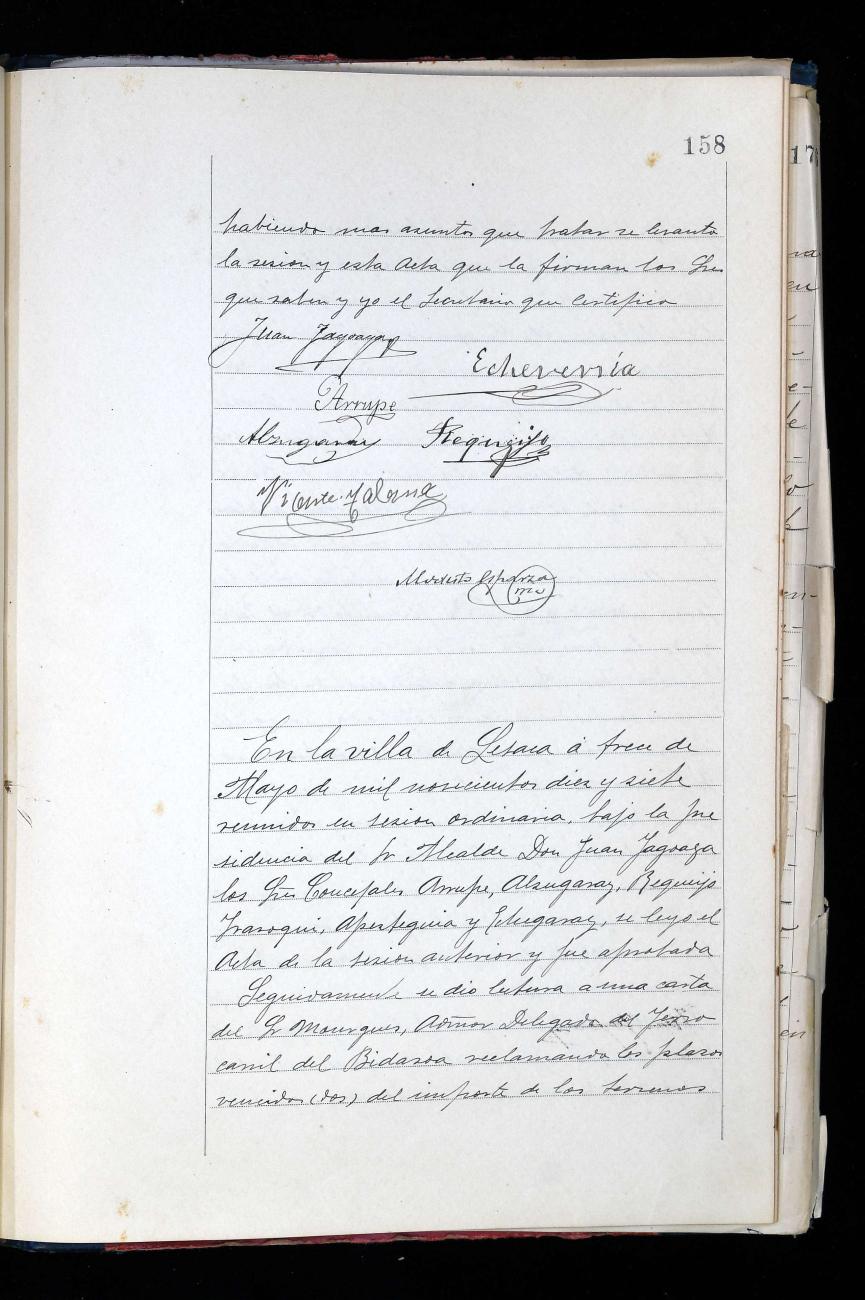 158
habiendo mas asuntos que tratar se levanto
la sesion y esta Acta que la firman los Sres
que saben y yo el Secretario que certifico
Juan Jagoaga
Echeverria
Arrupe
Alzugaray Requejo
Vicente
Modesto Esparza
En la villa de Lesaca á trece de
Mayo de mil novecientos diez y siete
reunidos en sesion ordinaria, bajo la pre
sidencia del Sr Alcalde Don Juan Jagoaga
los Sres Concejales Arrupe, Alzugaray, Requejo
Irasoqui, Apesteguia y Echegaray, se leyo el
Acta de la sesion anterior y fue aprobada
Seguidamente se dio lectura a una carta
del Sr Mourgues, Admor Delegado del Ferro
carril del Bidasoa reclamando los plazos
vencidos (dos) del importe de los terrenos